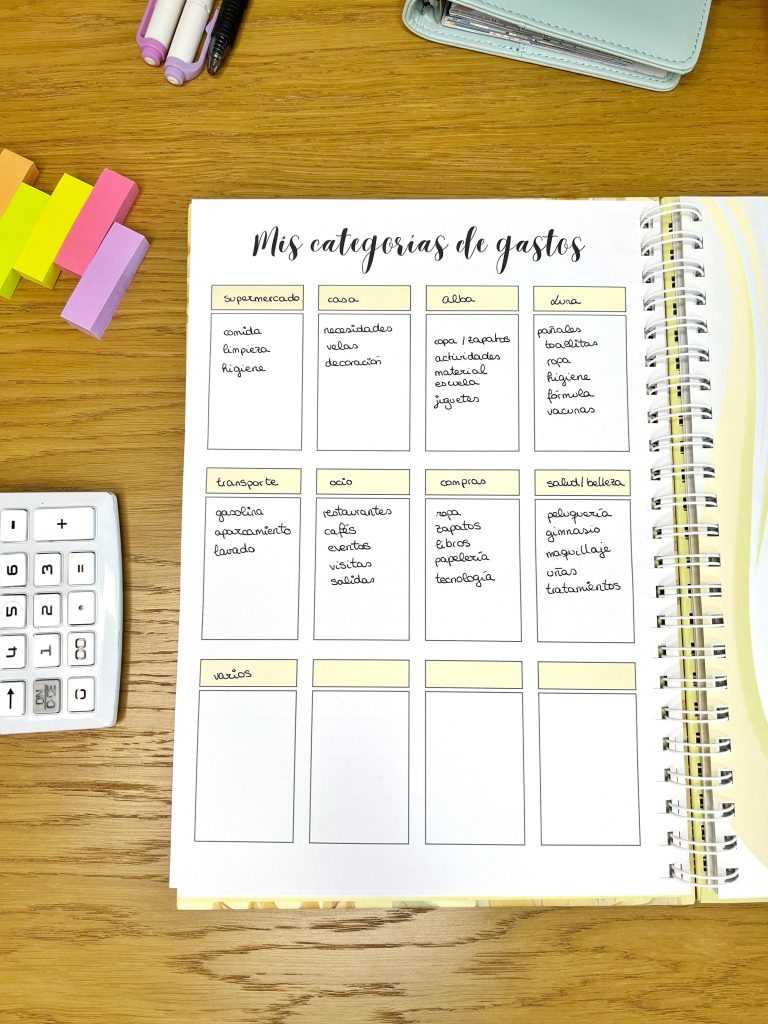 Mis categorías de gastos
supermercado
comida
limpieza
higiene
casa
necesidades
velas
decoración
alba
ropa / zapatos
actividades
material
escuela
juguetes
Luna
pañales
toallitas
ropa
higiene
fórmula
vacunas
transporte
gasolina
aparcamiento
lavado
ocio
restaurantes
cafés
eventos
visitas
salidas
compras
ropa
zapatos
libros
papelería
tecnología
salud/belleza
peluquería
gimnasio
maquillaje
uñas
tratamientos
varios
- +
6 3 =
5 2 •
4 1 00
→ ON C·CE 0